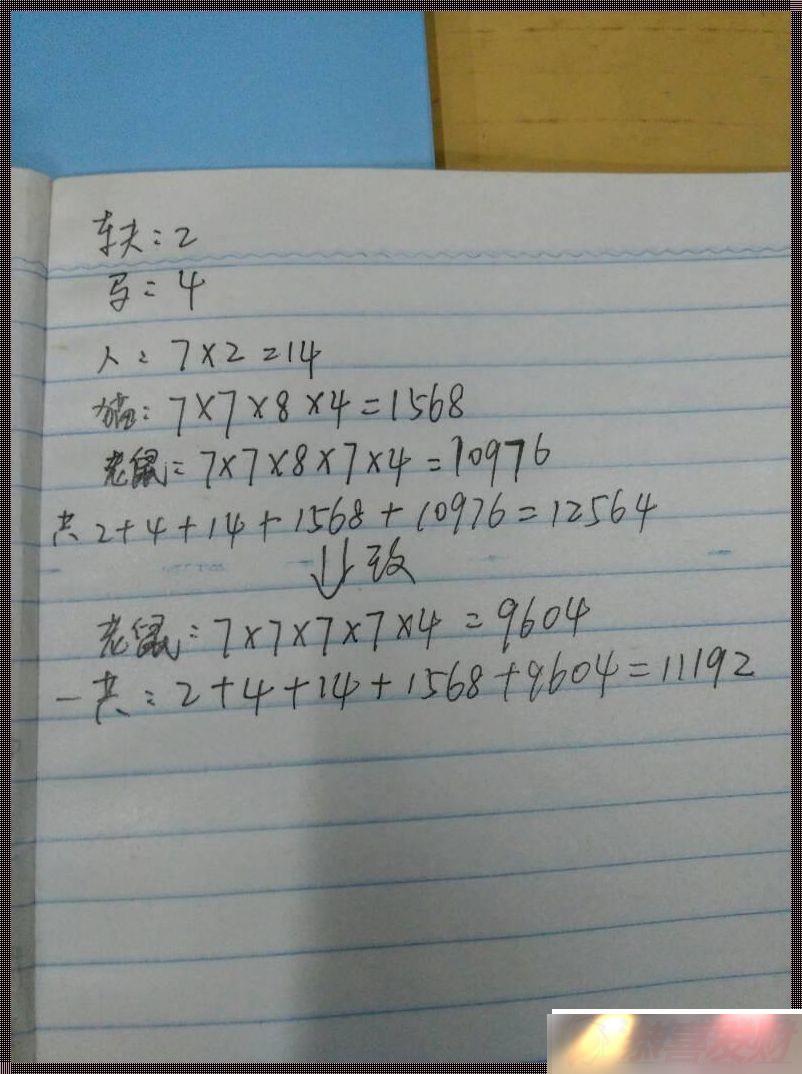 车夫：2
马：4
人：7×2=14
猫：7×7×8×4=1568
老鼠：7×7×8×7×4=10976
共 2+4+14+1568+10976=12564
↓改
老鼠：7×7×7×7×4=9604
一共：2+4+14+1568+9604=11192